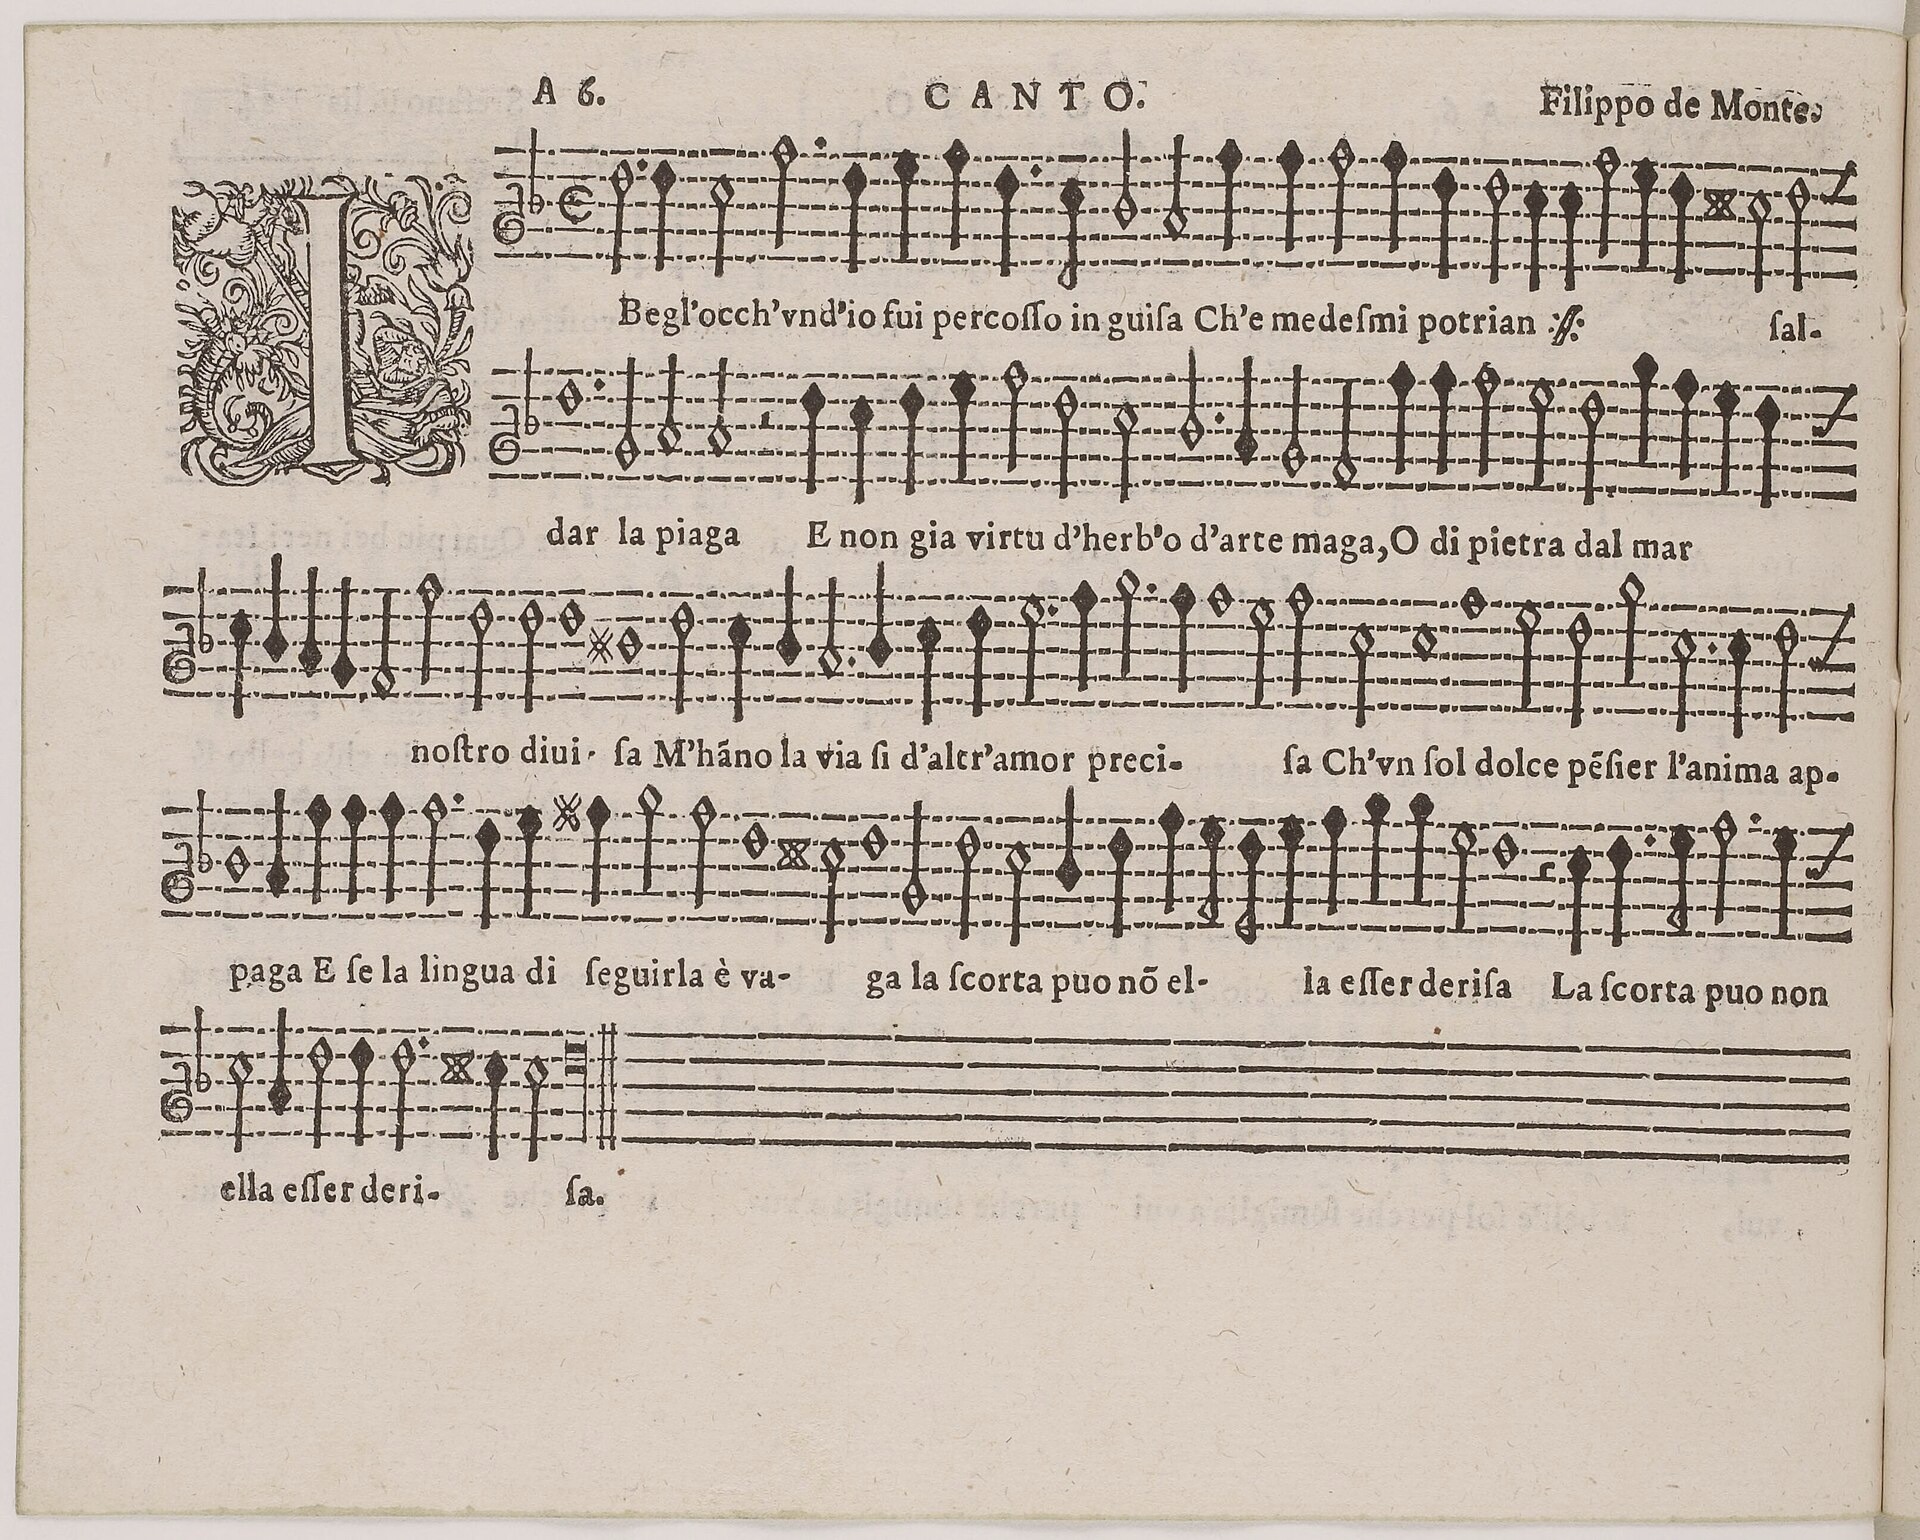 A 6. CANTO. Filippo de Monte.
I
Begl'occh'vnd'io fui percoſſo in guiſa Ch'e medeſmi potrian :ſſ: ſal-
dar la piaga E non gia virtu d'herb'o d'arte maga, O di pietra dal mar
noſtro diui- ſa M'hāno la via ſi d'altr'amor preci- ſa Ch'vn ſol dolce pēſier l'anima ap-
paga E ſe la lingua di ſeguirla è va- ga la ſcorta puo nō el- la eſſer deriſa La ſcorta puo non
ella eſſer deri- ſa.